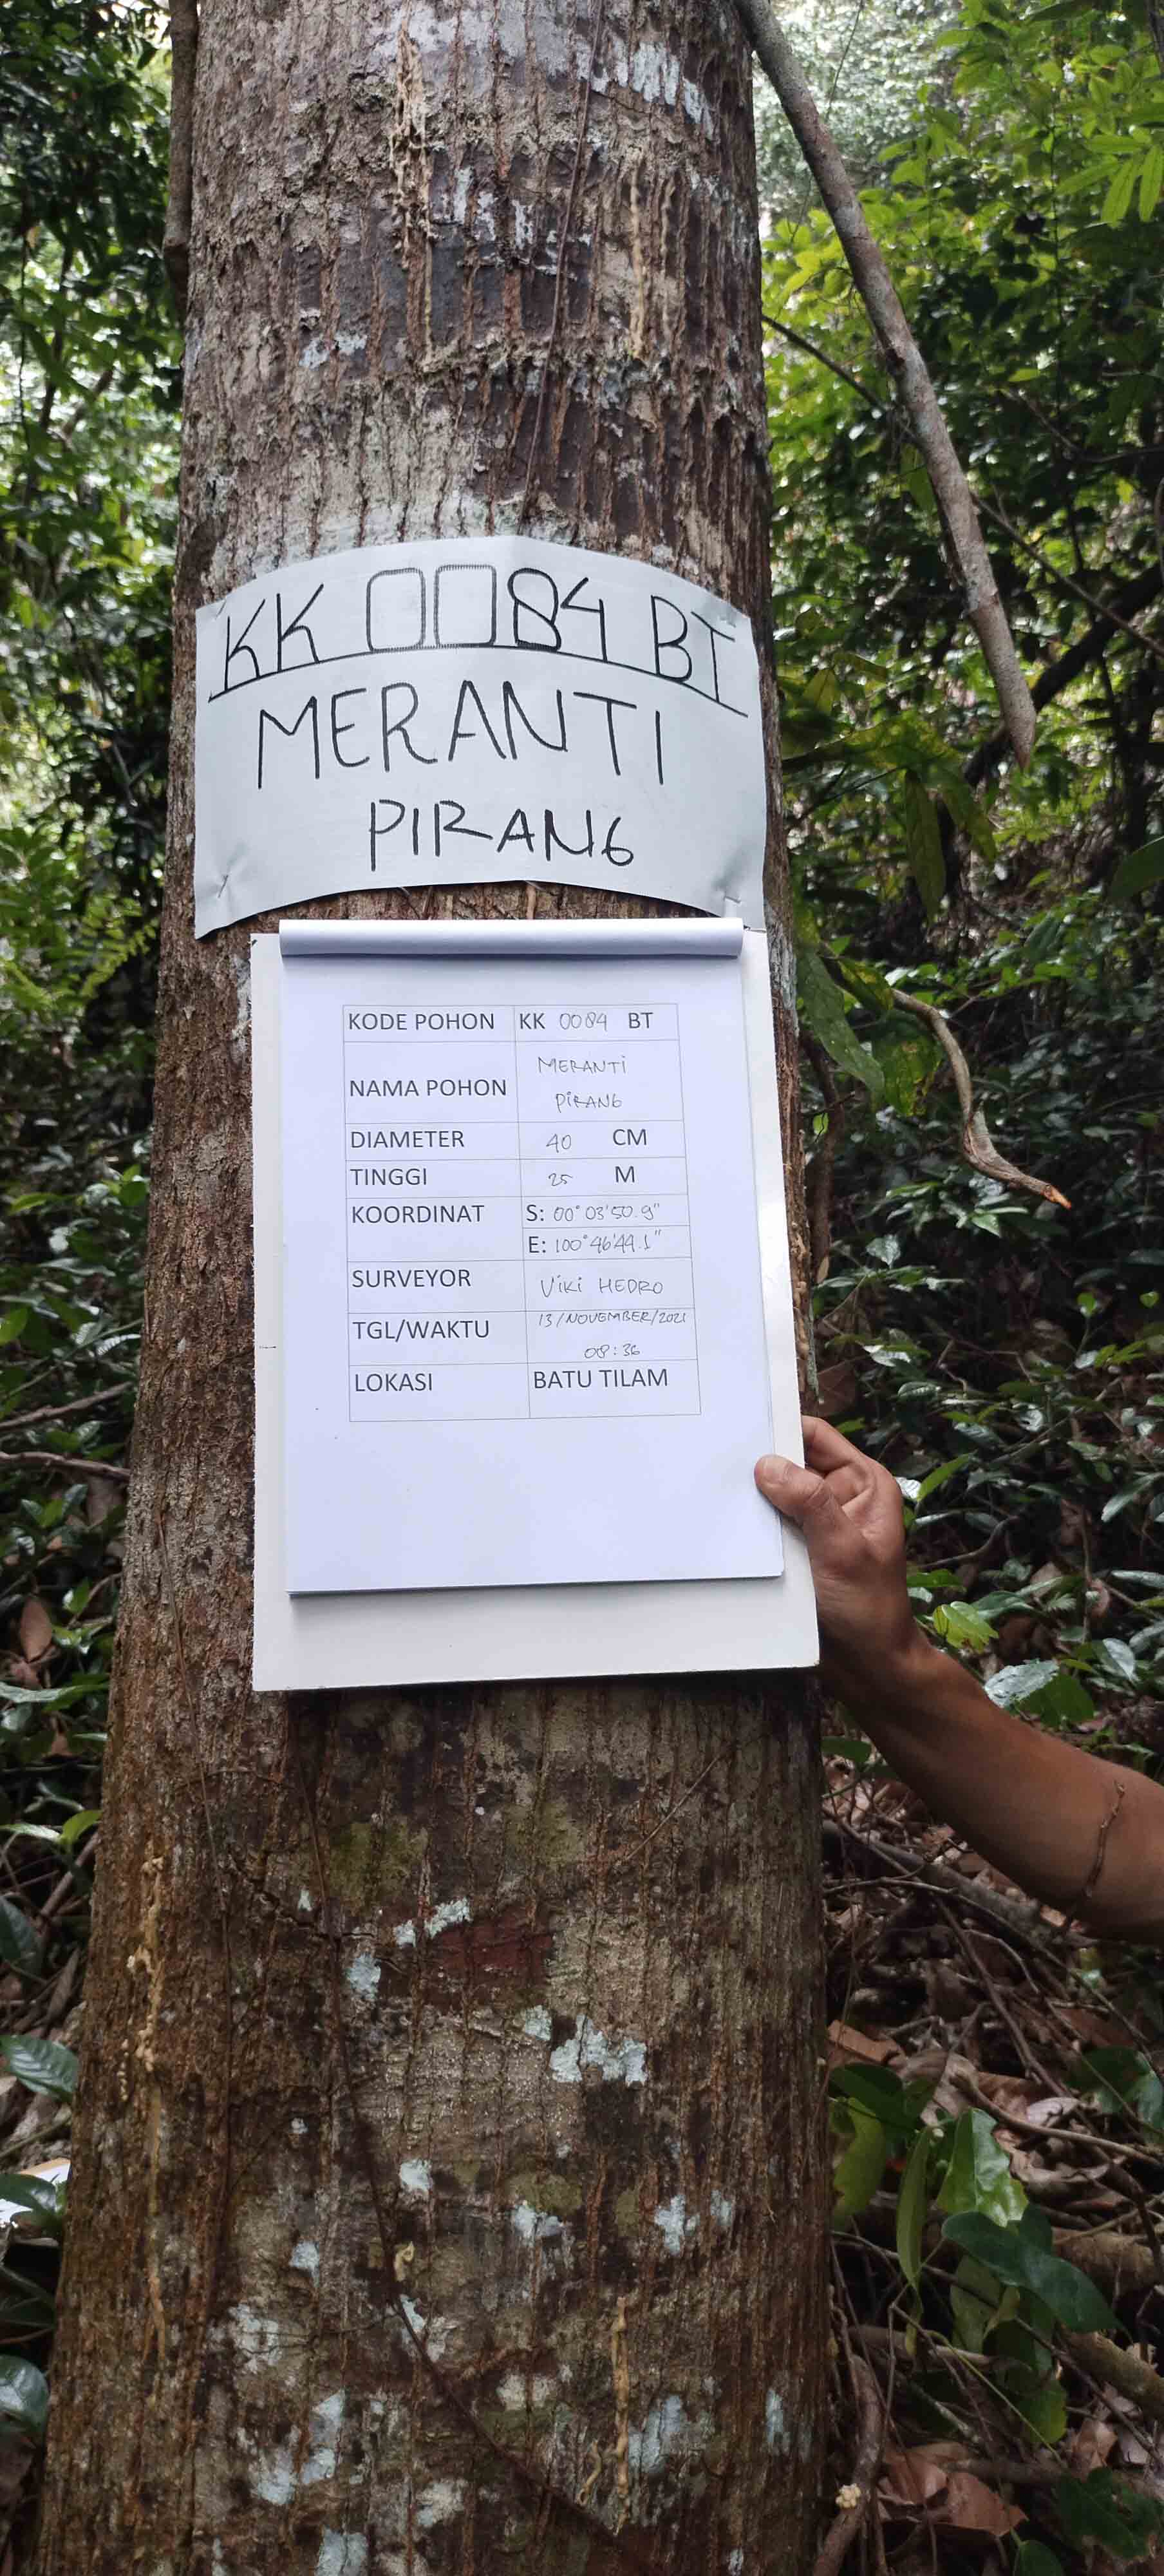 KK 0084 BT
MERANTI
PIRANG
KODE POHON KK 0084 BT
NAMA POHON MERANTI
PIRANG
DIAMETER 40 CM
TINGGI 25 M
KOORDINAT S: 00° 03' 50.9"
E: 100° 46' 44.1"
SURVEYOR VIKI HEDRO
TGL/WAKTU 13/NOVEMBER/2021
08:36
LOKASI BATU TILAM